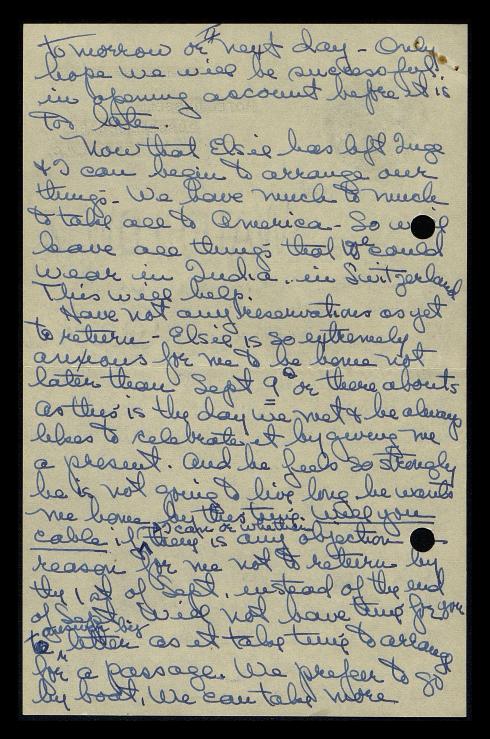 tomorrow or next day - Only
hope we will be successful
in opening account before it is
too late.
Now that Elsie has left Inge
& I can begin to arrange our
things. We have much to much
to take all to America - So will
leave all things that we could
wear in India. in Switzerland
This will help.
Have not any reservations as yet
to return - Elsie is so extremely
anxious for me to be home not
later than Sept 9th or there abouts
as this is the day we met & he always
likes to celebrate it by giving me
a present. And he feels so strongly
he is not going to live long he wants
me home by this time. Will you
cable if I can or whether
there is any objection -
reason for me not to return by
the 1st of Sept. instead of the end
of Sept. Will not have time for you
to answer by
letter as it takes time to arrange
for a passage. We prefer to go
by boat, We can take more